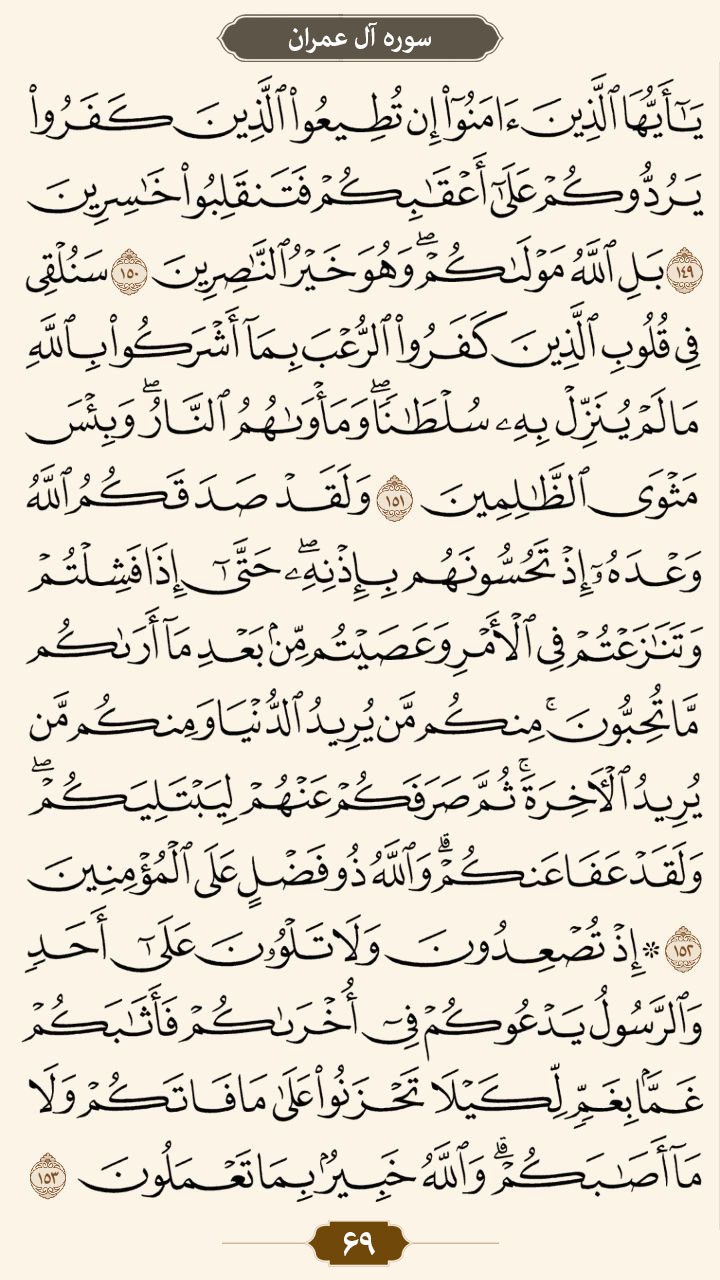 سوره آل عمران
يَـٰٓأَيُّهَا ٱلَّذِينَ ءَامَنُوٓا۟ إِن تُطِيعُوا۟ ٱلَّذِينَ كَفَرُوا۟
يَرُدُّوكُمْ عَلَىٰٓ أَعْقَـٰبِكُمْ فَتَنقَلِبُوا۟ خَـٰسِرِينَ
١٤٩ بَلِ ٱللَّهُ مَوْلَىٰكُمْ ۖ وَهُوَ خَيْرُ ٱلنَّـٰصِرِينَ ١٥٠ سَنُلْقِى
فِى قُلُوبِ ٱلَّذِينَ كَفَرُوا۟ ٱلرُّعْبَ بِمَآ أَشْرَكُوا۟ بِٱللَّهِ
مَا لَمْ يُنَزِّلْ بِهِۦ سُلْطَـٰنًا ۖ وَمَأْوَىٰهُمُ ٱلنَّارُ ۖ وَبِئْسَ
مَثْوَى ٱلظَّـٰلِمِينَ ١٥١ وَلَقَدْ صَدَقَكُمُ ٱللَّهُ
وَعْدَهُۥٓ إِذْ تَحُسُّونَهُم بِإِذْنِهِۦ ۖ حَتَّىٰٓ إِذَا فَشِلْتُمْ
وَتَنَـٰزَعْتُمْ فِى ٱلْأَمْرِ وَعَصَيْتُم مِّنۢ بَعْدِ مَآ أَرَىٰكُم
مَّا تُحِبُّونَ ۚ مِنكُم مَّن يُرِيدُ ٱلدُّنْيَا وَمِنكُم مَّن
يُرِيدُ ٱلْـَٔاخِرَةَ ۚ ثُمَّ صَرَفَكُمْ عَنْهُمْ لِيَبْتَلِيَكُمْ ۖ
وَلَقَدْ عَفَا عَنكُمْ ۗ وَٱللَّهُ ذُو فَضْلٍ عَلَى ٱلْمُؤْمِنِينَ
١٥٢ * إِذْ تُصْعِدُونَ وَلَا تَلْوُۥنَ عَلَىٰٓ أَحَدٍ
وَٱلرَّسُولُ يَدْعُوكُمْ فِىٓ أُخْرَىٰكُمْ فَأَثَـٰبَكُمْ
غَمًّۢا بِغَمٍّ لِّكَيْلَا تَحْزَنُوا۟ عَلَىٰ مَا فَاتَكُمْ وَلَا
مَآ أَصَـٰبَكُمْ ۗ وَٱللَّهُ خَبِيرٌۢ بِمَا تَعْمَلُونَ ١٥٣
۶۹